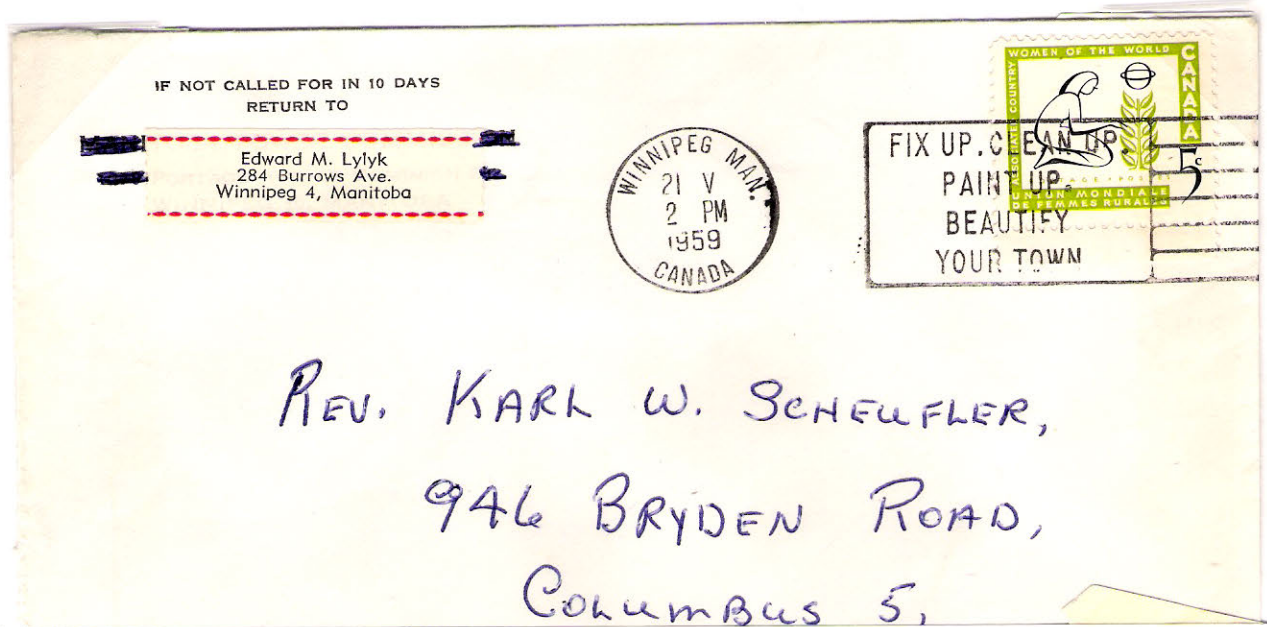 IF NOT CALLED FOR IN 10 DAYS
RETURN TO
Edward M. Lylyk
284 Burrows Ave.
Winnipeg 4, Manitoba
WINNIPEG MAN.
21 V
2 PM
1959
CANADA
FIX UP. CLEAN UP.
PAINT UP.
BEAUTIFY
YOUR TOWN
ASSOCIATED COUNTRY WOMEN OF THE WORLD
CANADA
5c
UNION MONDIALE
DE FEMMES RURALES
REV. KARL W. SCHEUFLER,
946 BRYDEN ROAD,
COLUMBUS 5,